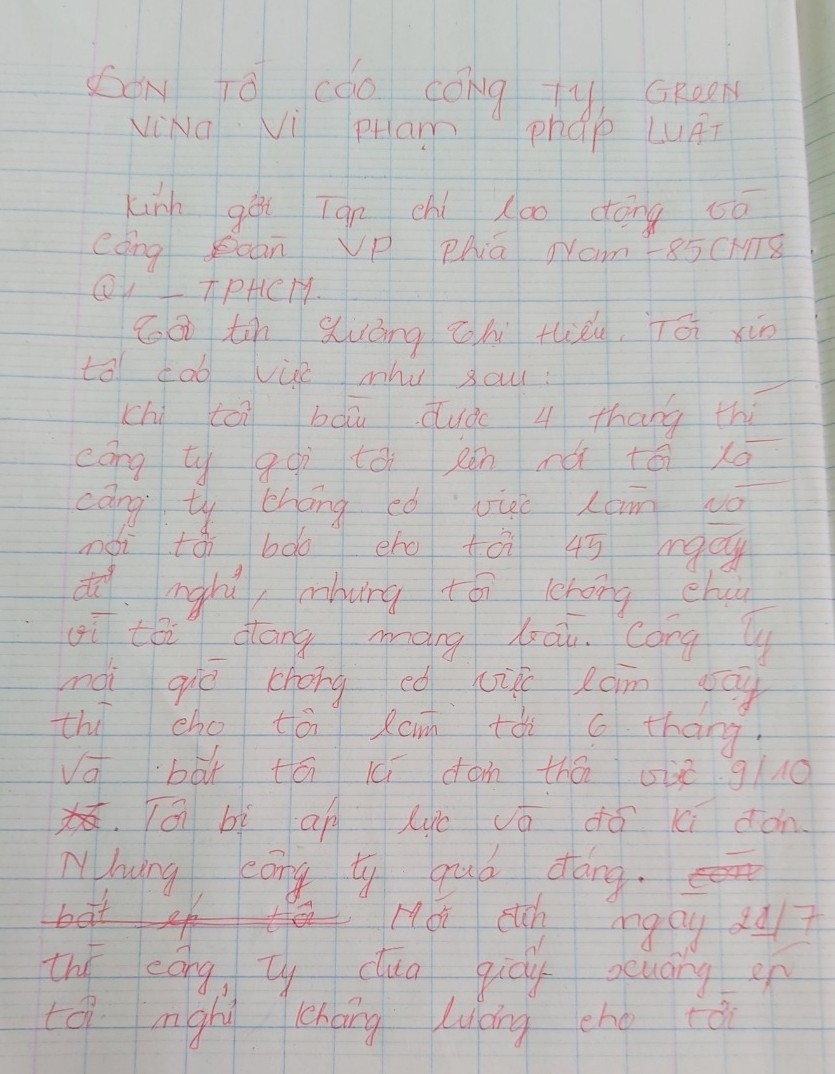 ĐƠN TỐ CÁO CÔNG TY GREEN
VINA VI PHẠM PHÁP LUẬT
Kính gởi Tạp chí lao động và
công Đoàn VP Phía Nam - 85 CMT8
Q1 - TPHCM.
Tôi tên Lường Thị Hiếu. Tôi xin
tố cáo việc như sau:
Khi tôi bầu được 4 tháng thì
công ty gọi tôi lên nói tôi là
công ty không có việc làm và
nói tôi báo cho tôi 45 ngày
để nghỉ, nhưng tôi không chịu
vì tôi đang mang bầu. Công Ty
nói giờ không có việc làm vậy
thì cho tôi làm tới 6 tháng.
Và bắt tôi kí đơn thôi việc 9/10
Tôi bị áp lực và đã kí đơn.
Nhưng công ty quá đáng.
bắt ép tôi Mới đích ngày 21/7
thì công ty đưa giấy xuống ép
tôi nghỉ không lương cho tới